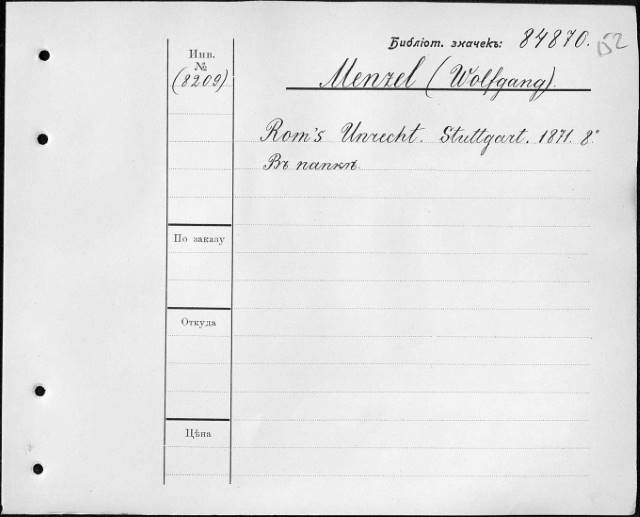 Библіот. значекъ: 84870.
Инв.
№
(8209)
Menzel (Wolfgang).
Rom's Unrecht. Stuttgart. 1871. 8°
Въ папкѣ.
По заказу
Откуда
Цѣна